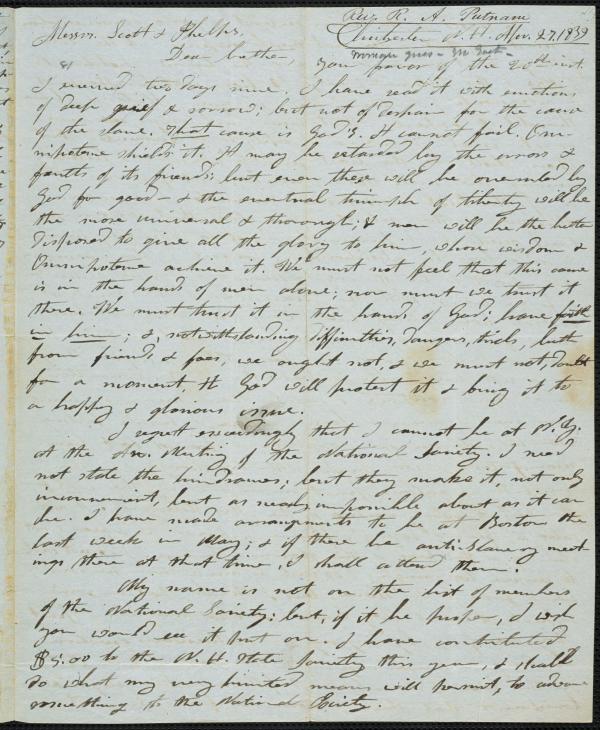 Rev. R. A. Putnam
Messrs. Scott & Phelps, Chichester N.H. Nov. 27. 1839
Dear brother,
your favor of the 20th inst.
I received two days since. I have read it with emotions
of deep grief & sorrow; but not of despair for the cause
of the slave. That cause is God's. It cannot fail. Om-
nipotence shields it. It may be retarded by the errors &
faults of its friends; but even these will be overruled by
God for good — & the eventual triumph of liberty will be
the more universal & thorough; & men will be the better
disposed to give all the glory to him, whose wisdom &
Omnipotence achieve it. We must not feel that this cause
is in the hands of men alone; nor must we trust it
there. We must trust it in the hands of God; have faith
in him; &, notwithstanding difficulties, dangers, trials, both
from friends & foes, we ought not, & we must not, doubt
for a moment, tt God will protect it & bring it to
a happy & glorious issue.
I regret exceedingly that I cannot be at N.Y.
at the An. Meeting of the National Society. I need
not state the hindrances; but they make it, not only
inconvenient, but as nearly impossible about as it can
be. I have made arrangements to be at Boston the
last week in May; & if there be anti-slavery meet-
ings there at that time, I shall attend them.
My name is not on the list of members
of the National Society: but, if it be proper, I wish
you would see it put on. I have contributed
$5.00 to the N.H. State Society this year, & shall
do what my very limited means will permit, to advance
something to the National Society.